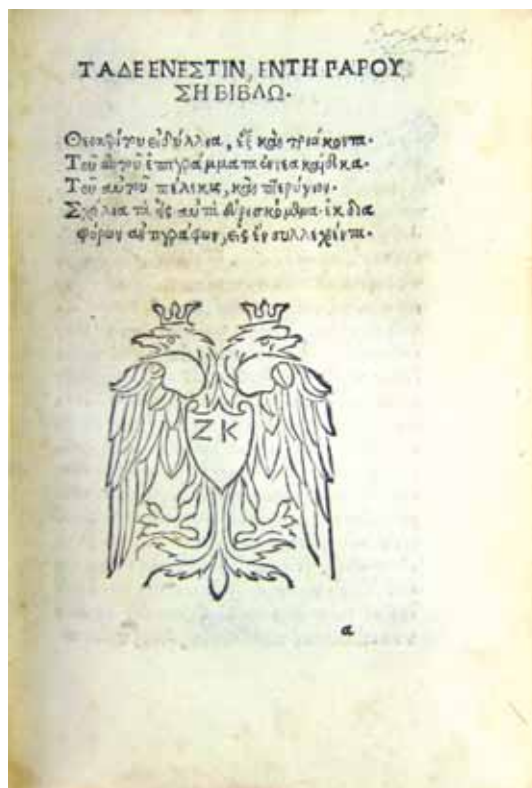 ΤΑΔΕ ΕΝΕΣΤΙΝ, ΕΝ ΤΗ ΠΑΡΟΥ
ΣΗ ΒΙΒΛΩ.
Θεοκρίτου εἰδύλλια, ἓξ καὶ τριάκοντα.
Τοῦ αὐτοῦ ἐπιγράμματα ἐννεακαίδεκα.
Τοῦ αὐτοῦ πέλεκυς, καὶ πτερύγιον.
Σχόλια τὰ εἰς αὐτὰ εὑρισκόμενα ἐκ δια
φόρων ἀντιγράφων, εἰς ἓν συλλεχθέντα.
Ζ Κ
α